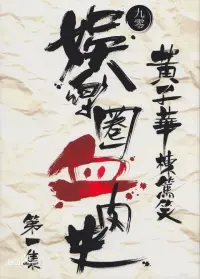 九零
黃子華棟篤笑
娛樂圈血肉史
第一集